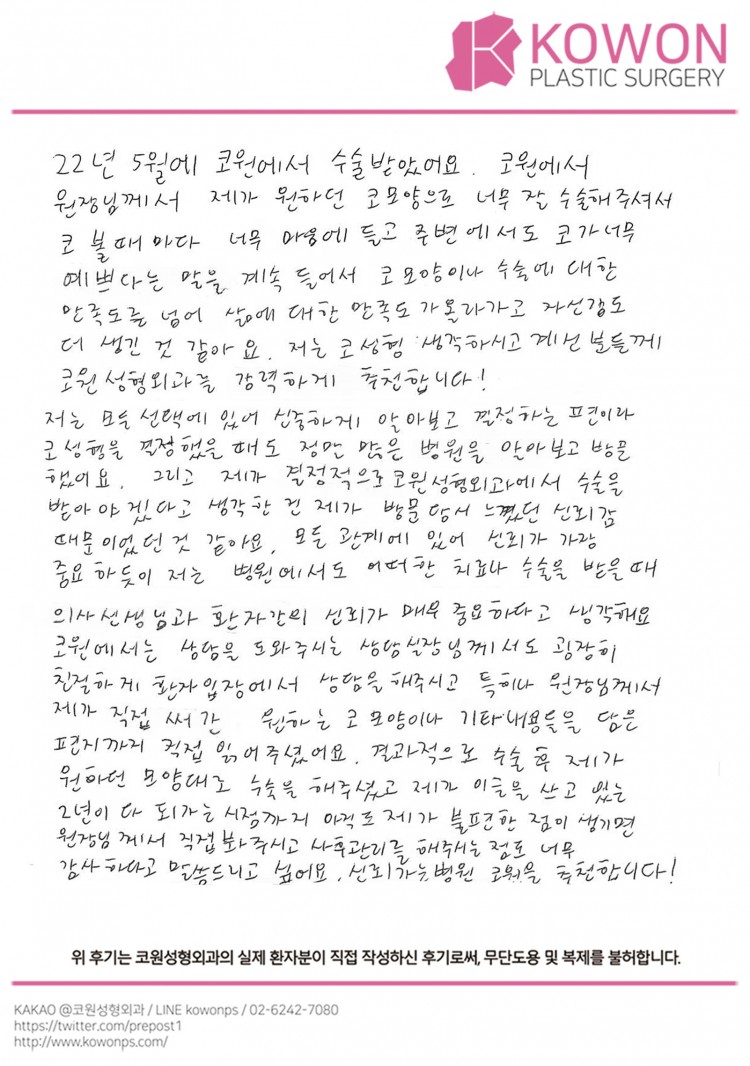 KOWON
PLASTIC SURGERY
22년 5월에 코원에서 수술받았어요. 코원에서
원장님께서 제가 원하던 코모양으로 너무 잘 수술해주셔서
코 볼때 마다 너무 마음에 들고 주변에서도 코가너무
예쁘다는 말을 계속 들어서 코모양이나 수술에 대한
만족도를 넘어 삶에 대한 만족도가올라가고 자신감도
더 생긴 것 같아요. 저는 코성형 생각하시고 계신 분들께
코원성형외과를 강력하게 추천합니다!
저는 모든 선택에 있어 신중하게 알아보고 결정하는 편이라
코성형을 결정했을 때도 정말 많은 병원을 알아보고 방문
했어요. 그리고 제가 결정적으로 코원성형외과에서 수술을
받아야겠다고 생각한 건 제가 방문당시 느꼈던 신뢰감
때문이었던것 같아요. 모든 관계에 있어 신뢰가 가장
중요하듯이 저는 병원에서도 어떠한 치료나 수술을 받을 때
의사선생님과 환자간의 신뢰가 매우 중요하다고 생각해요
코원에서는 상담을 도와주시는 상담실장님께서도 굉장히
친절하게 환자입장에서 상담을 해주시고 특히나 원장님께서
제가 직접 써간 원하는 코모양이나 기타내용들을 담은
편지까지 직접 읽어주셨어요. 결과적으로 수술 후 제가
원하던 모양대로 수술을 해주셨고 제가 이들을 산고 있는
2년이 다 되가는 시점까지 아직도 제가 불편한 점이 생기면
원장님께서 직접봐주시고 사후관리를 해주시는 점도 너무
감사하다고 말씀드리고 싶어요. 신뢰가는병원 코원을 추천합니다!
위 후기는 코원성형외과의 실제 환자분이 직접 작성하신 후기로써, 무단도용 및 복제를 불허합니다.
KAKAO @코원성형외과 / LINE kowonps / 02-6242-7080
https://twitter.com/prepost1
http://www.kowonps.com/